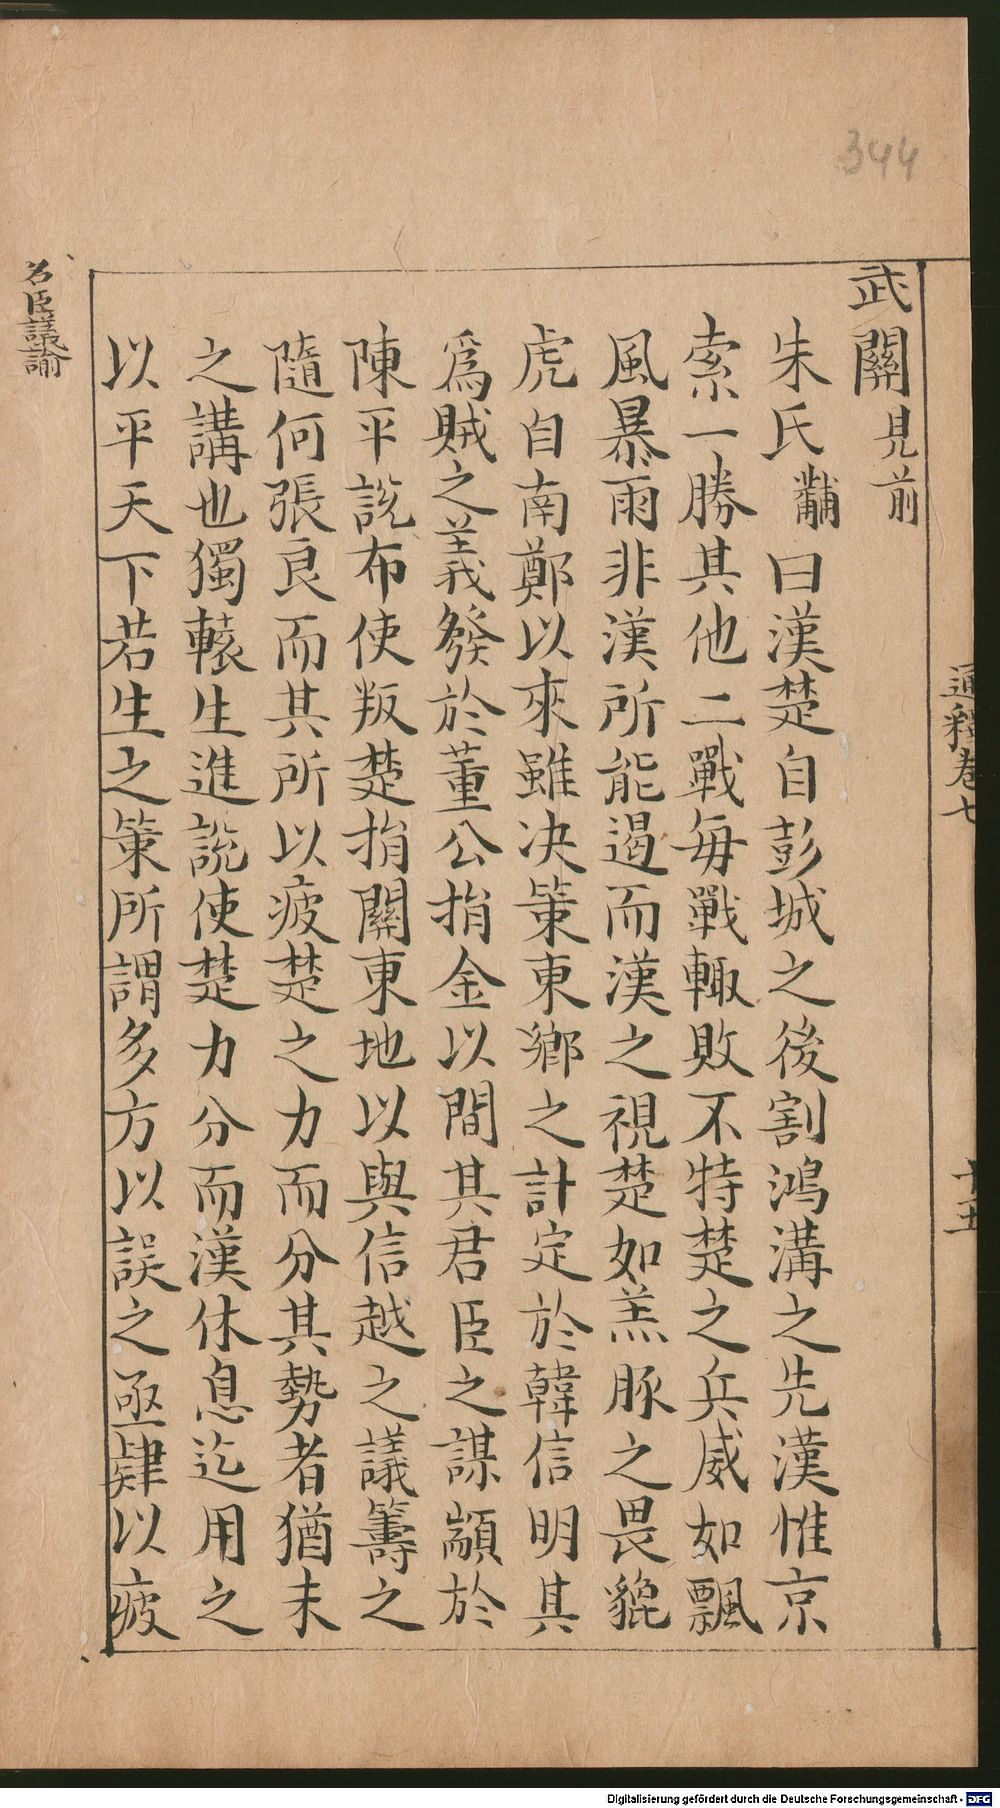 344
武關見前
朱氏黼曰漢楚自彭城之後割鴻溝之先漢惟京
索一勝其他二戰每戰輙敗不特楚之兵威如飄
風暴雨非漢所能遏而漢之視楚如羔豚之畏貔
虎自南鄭以來雖决策東鄉之計定於韓信明其
爲賊之義發於董公捐金以間其君臣之謀顓於
陳平說布使叛楚捐關東地以與信越之議籌之
隨何張良而其所以疲楚之力而分其勢者猶未
之講也獨轅生進說使楚力分而漢休息迄用之
以平天下若生之策所謂多方以誤之亟肄以疲
名臣議論
通釋卷七
十五
Digitalisierung gefördert durch die Deutsche Forschungsgemeinschaft - DFG